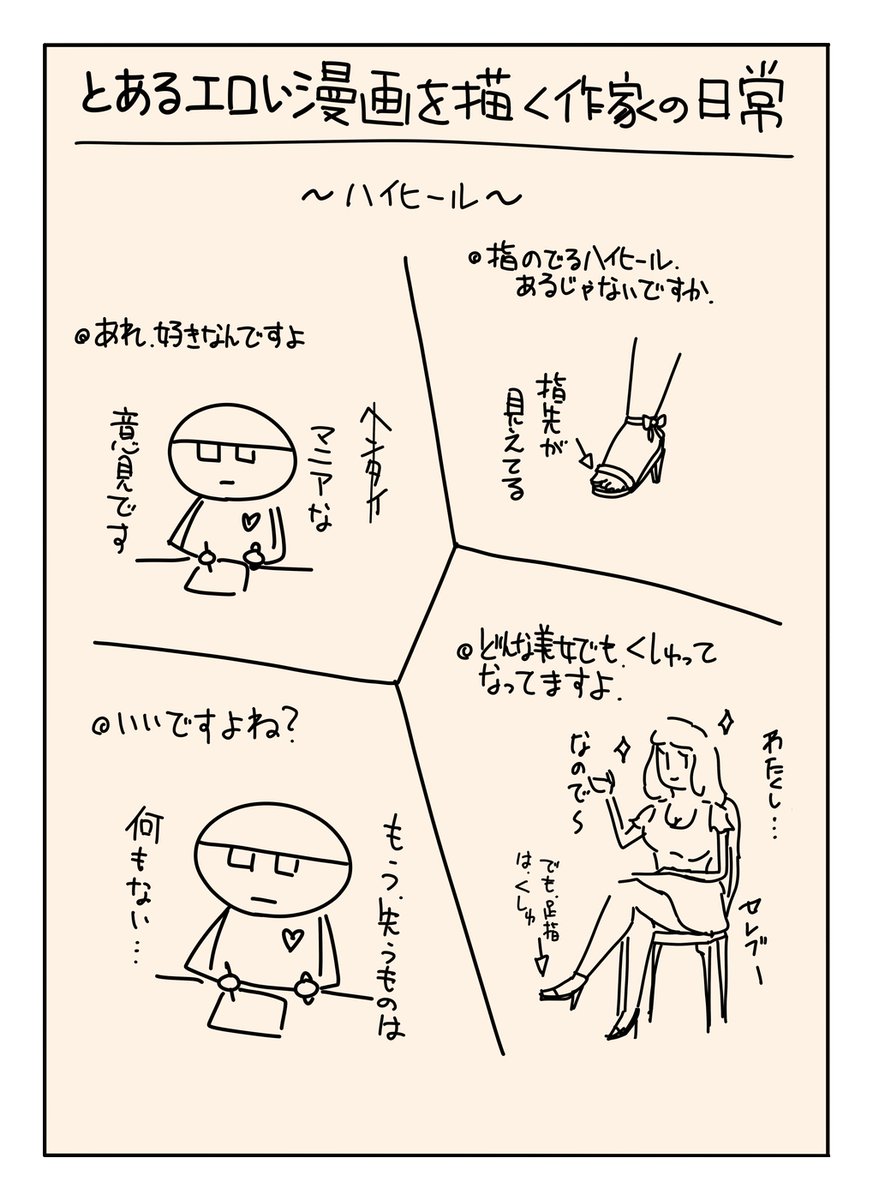 とあるエロい漫画を描く作家の日常
〜ハイヒール〜
◎指のでるハイヒール.
あるじゃないですか.
指先が
見えてる
◎あれ.好きなんですよ
ヘンタイ
マニアな
意見です
◎どんな美女でも.くしゅって
なってますよ.
わたくし…
セレブー
なので〜
でも.足指
は.くしゅ
◎いいですよね?
もう.失うものは
何もない…